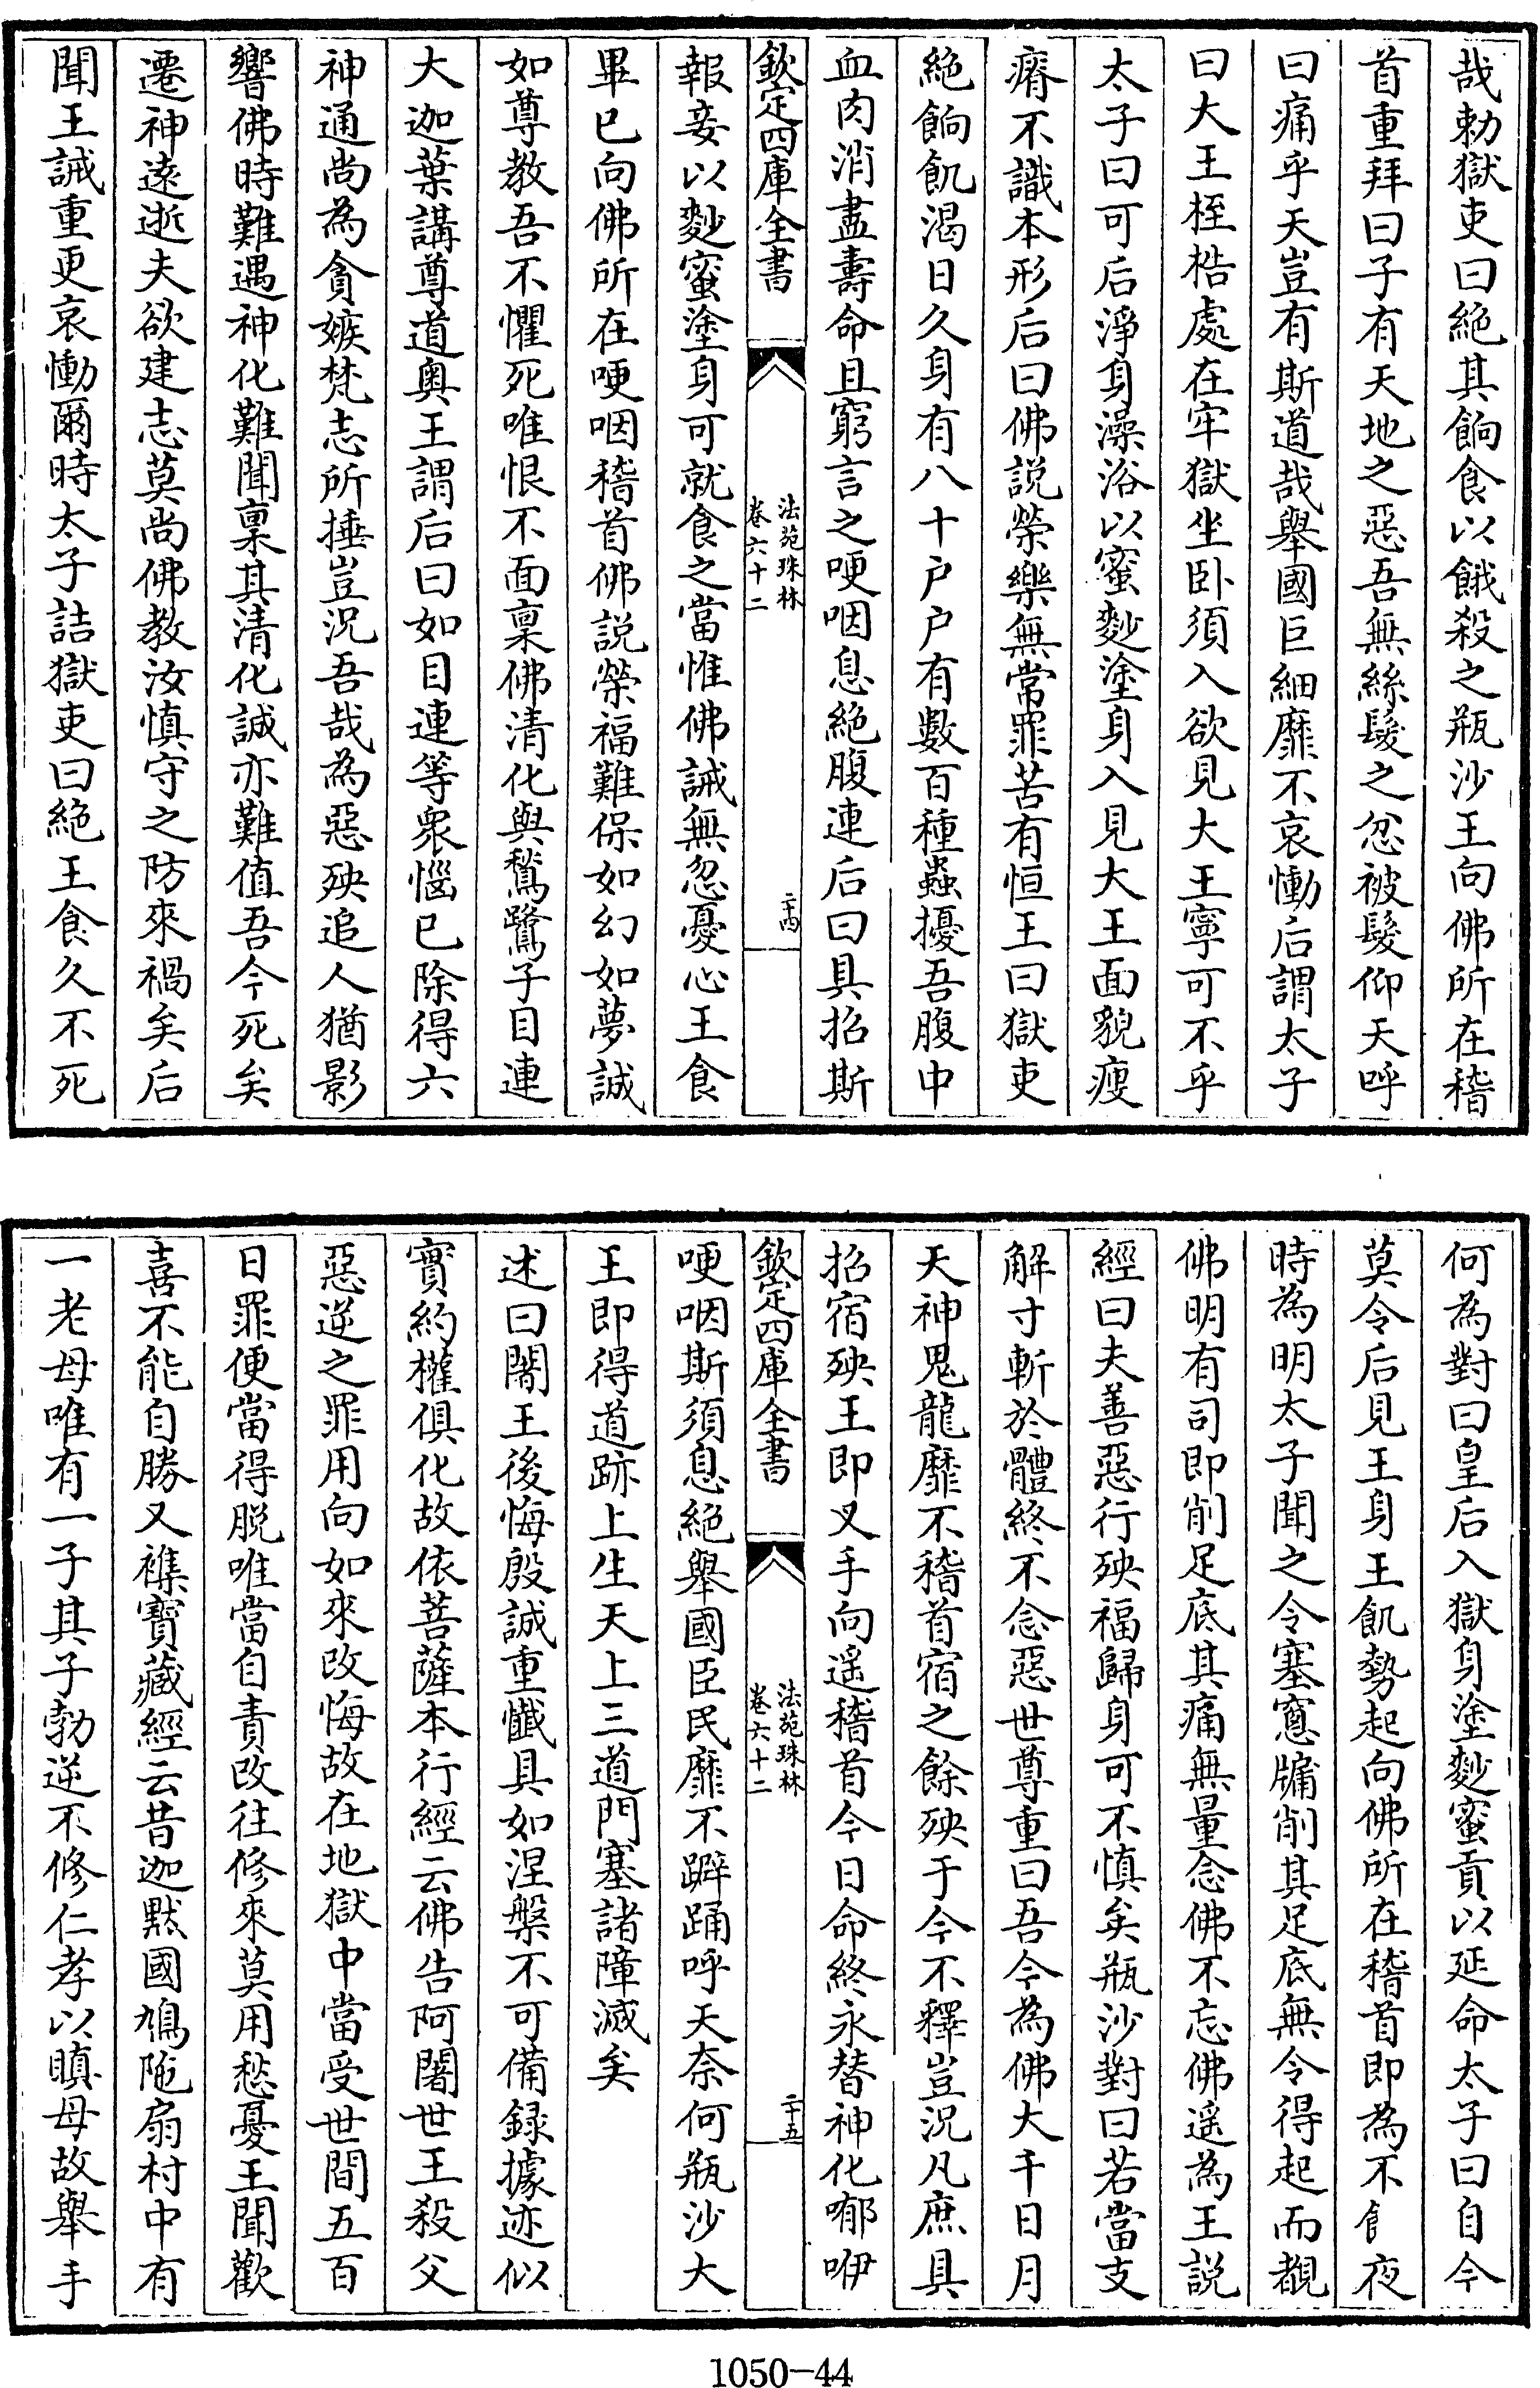 哉勅獄吏曰絕其餉食以餓殺之瓶沙王向佛所在稽
首重拜曰子有天地之惡吾無絲髮之忿被髮仰天呼
曰痛乎天豈有斯道哉舉國巨細靡不哀慟后謂太子
曰大王桎梏處在牢獄坐卧須人欲見大王寧可不乎
太子曰可后淨身澡浴以蜜麨塗身入見大王面貌瘦
瘠不識本形后曰佛説榮樂無常罪苦有恒王曰獄吏
絕餉飢渴日久身有八十户户有數百種蟲擾吾腹中
血肉消盡壽命且窮言之哽咽息絕腹連后曰具招斯
欽定四庫全書
法苑珠林
卷六十二
二十四
報妾以麨蜜塗身可就食之當惟佛誡無忽憂心王食
畢已向佛所在哽咽稽首佛説榮福難保如幻如夢誠
如尊教吾不懼死唯恨不面稟佛清化與鶖鷺子目連
大迦葉講尊道奥王謂后曰如目連等衆惱已除得六
神通尚為貪嫉梵志所捶豈況吾哉為惡殃追人猶影
響佛時難遇神化難聞稟其清化誠亦難值吾今死矣
遷神逺逝夫欲建志莫尚佛教汝慎守之防來禍矣后
聞王誡重更哀慟爾時太子詰獄吏曰絕王食久不死
何為對曰皇后入獄身塗麨蜜貢以延命太子曰自今
莫令后見王身王飢勢起向佛所在稽首即為不飢夜
時為明太子聞之令塞窻牖削其足底無令得起而覩
佛明有司即削足底其痛無量念佛不忘佛遥為王説
經曰夫善惡行殃福歸身可不慎矣瓶沙對曰若當支
解寸斬於體終不念惡世尊重曰吾今為佛大千日月
天神鬼龍靡不稽首宿之餘殃于今不釋豈況凡庶具
招宿殃王即叉手向遥稽首今日命終永替神化唧咿
欽定四庫全書
法苑珠林
卷六十二
二十五
哽咽斯須息絕舉國臣民靡不躃踊呼天奈何瓶沙大
王即得道跡上生天上三道門塞諸障滅矣
述曰闍王後悔殷誠重懺具如涅槃不可備録據迹似
實約權俱化故依菩薩本行經云佛告阿闍世王殺父
惡逆之罪用向如來改悔故在地獄中當受世間五百
日罪便當得脱唯當自責改往修來莫用愁憂王聞歡
喜不能自勝又襍寶藏經云昔迦黙國鳩陁扇村中有
一老母唯有一子其子勃逆不修仁孝以瞋母故舉手
1050-44